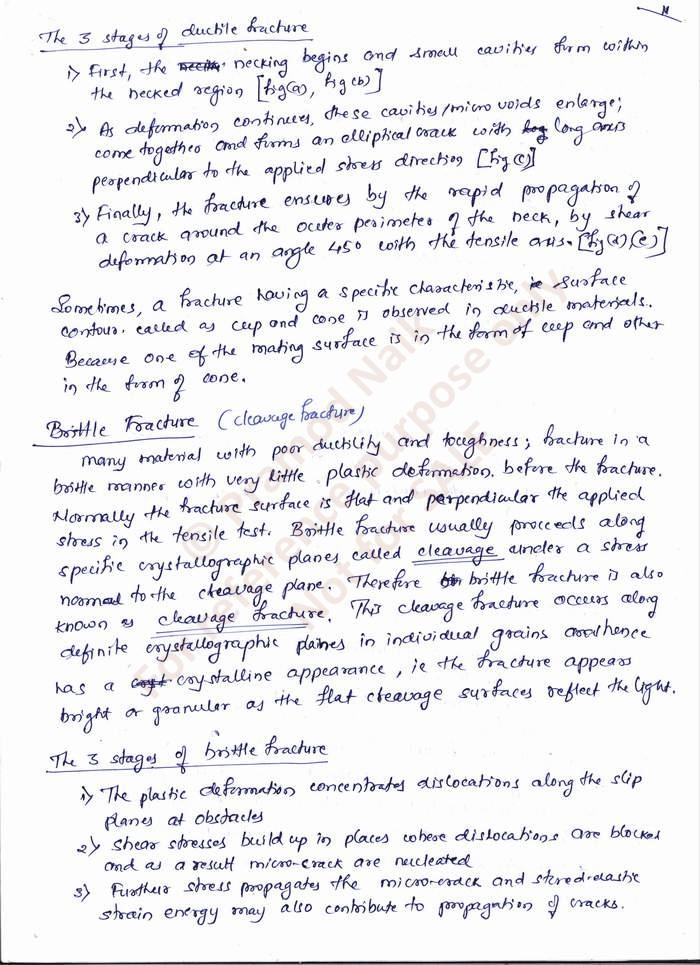 11
The 3 stages of ductile fracture
1) First, the necking begins and small cavities form within
the necked region [fig(a), fig(b)]
2) As deformation continues, these cavities/micro voids enlarge;
come together and forms an elliptical crack with long axis
perpendicular to the applied stress direction [fig(c)]
3) Finally, the fracture ensures by the rapid propagation of
a crack around the outer perimeter of the neck, by shear
deformation at an angle 45° with the tensile axis. [fig(d),(e)]
Sometimes, a fracture having a specific characteristic, surface
contour. called as cup and cone is observed in ductile materials.
Because one of the mating surface is in the form of cup and other
in the form of cone.
Brittle Fracture (cleavage fracture)
many material with poor ductility and toughness; fracture in a
brittle manner with very little plastic deformation. before the fracture.
Normally the fracture surface is flat and perpendicular the applied
stress in the tensile test. Brittle fracture usually proceeds along
specific crystallographic planes called cleavage under a stress
normal to the cleavage plane. Therefore brittle fracture is also
known as cleavage fracture. This cleavage fracture occurs along
definite crystallographic plaines in individual grains and hence
has a crystalline appearance, ie the fracture appears
bright or granular as the flat cleavage surfaces reflect the light.
The 3 stages of brittle fracture
1) The plastic deformation concentrates dislocations along the slip
planes at obstacles
2) shear stresses build up in places where dislocations are blocked
and as a result micro-crack are nucleated
3) Further stress propagates the micro-crack and stored-elastic
strain energy may also contribute to propagation of cracks.
© Pramod Naik
For reference purpose only
Not for SALE